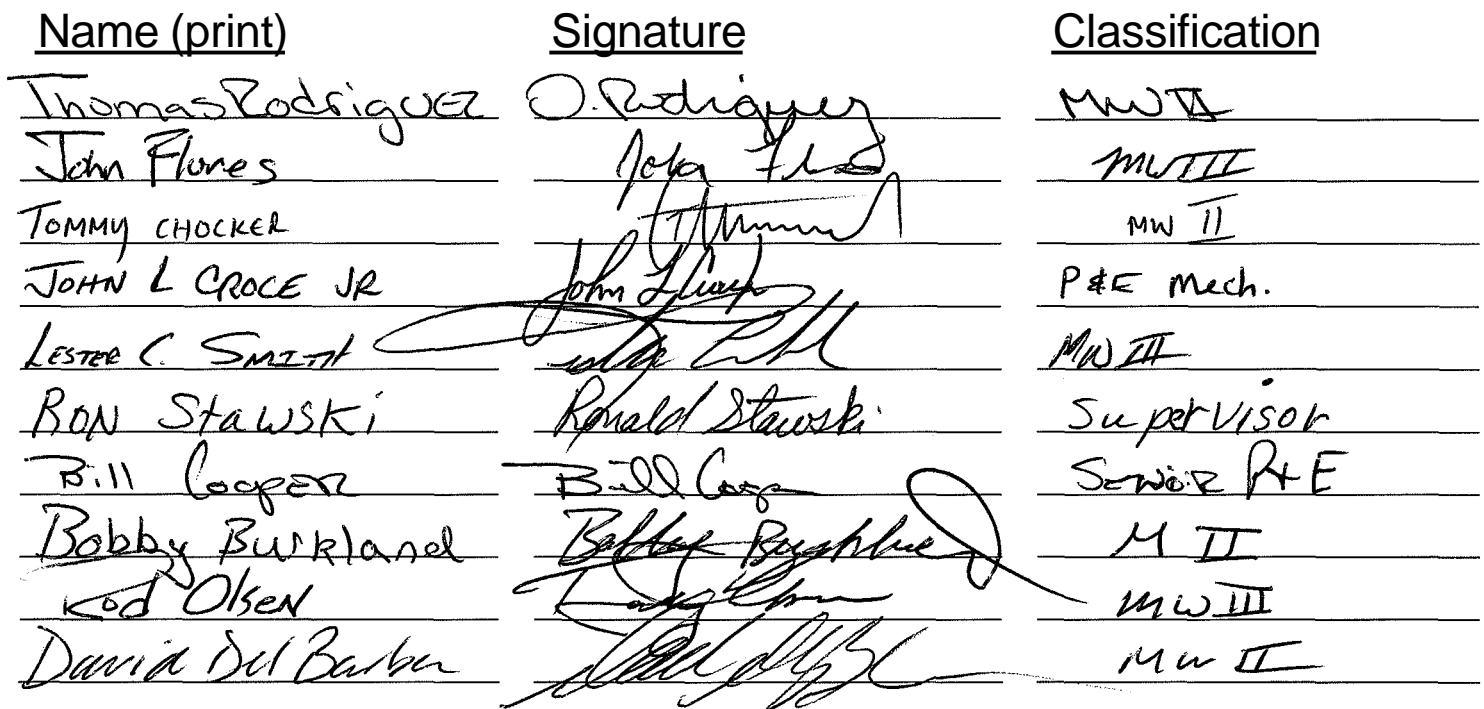 Name (print) Signature Classification
Thomas Rodriguez O. Rodriguez MW VI
John Flores John MW III
TOMMY CHOCKER MW II
JOHN L CROCE JR John L P & E Mech.
LESTER C. SMITH MW III
RON Stawski Ronald Stawski Supervisor
Bill Cooper Bill SENIOR P+E
Bobby Burkland Bobby M II
Rod Olsen MW III
David Del Barber MW II